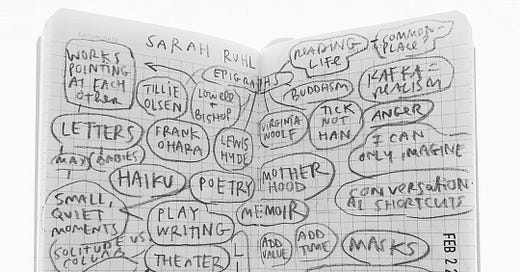 SARAH RUHL
WORKS
POINTING
AT EACH
OTHER
TILLIE
OLSEN
EPIGRAPHS
LOWELL +
BISHOP
LETTERS
MAX
BABIES
FRANK
OHARA
LEWIS
HYDE
HAIKU
POETRY
SMALL,
QUIET
MOMENTS
PLAY
WRITING
SOLITUDE VS.
THEATER
READING
LIFE
COMMON-
PLACE?
BUDDHISM
KAFKA =
REALISM
VIRGINIA
WOOLF
TICK
NOT
HAN
ANGER
I CAN
ONLY IMAGINE
MOTHER
HOOD
CONVERSATION
AL SHORTCUTS
MEMOIR
ADD
VALUE
ADD
TIME
MASKS
FEB 2